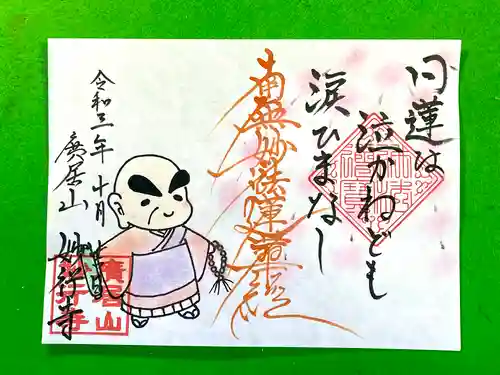 日蓮は
泣かねども
涙ひまなし
南無妙法蓮華経
令和三年 十月
廣居山 妙行寺
廣居山
妙行寺